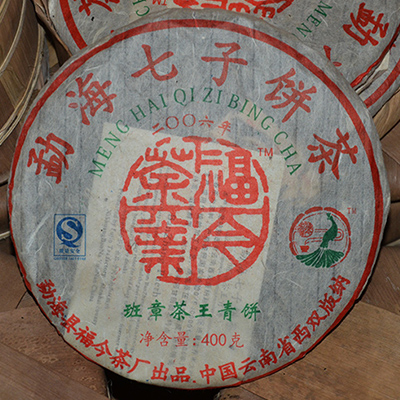 勐海七子饼茶
MENG HAI QI ZI BING CHA
二〇〇六年
福今茶業
TM
TM
班章茶王青饼
净含量:400克
勐海县福今茶厂出品.中国云南省西双版纳